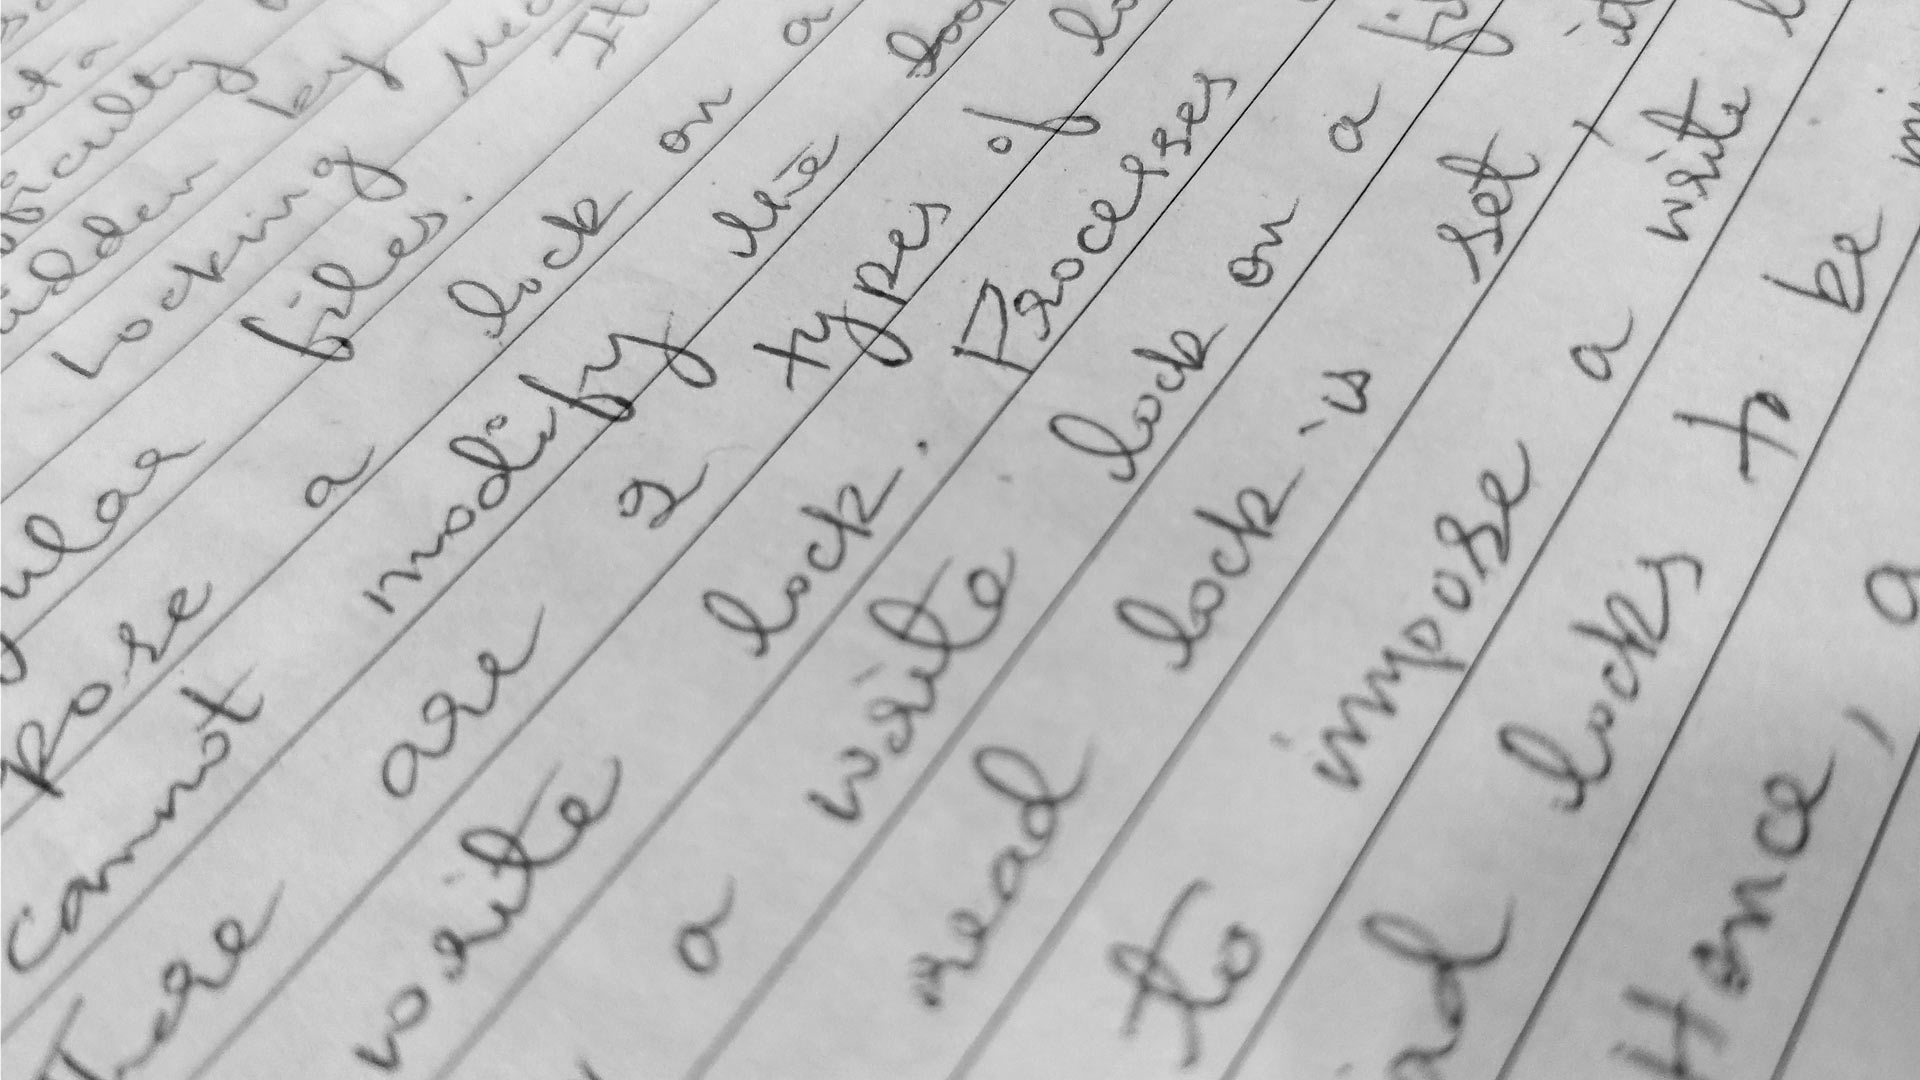 at a
ficulty
hidden by
Locking
ular files. It
pose a lock on a
cannot modify the
There are 2 types of lo
write lock. Processes
a write lock on a fi
read lock is set, it
to impose a write l
ad locks to be
Hence, a